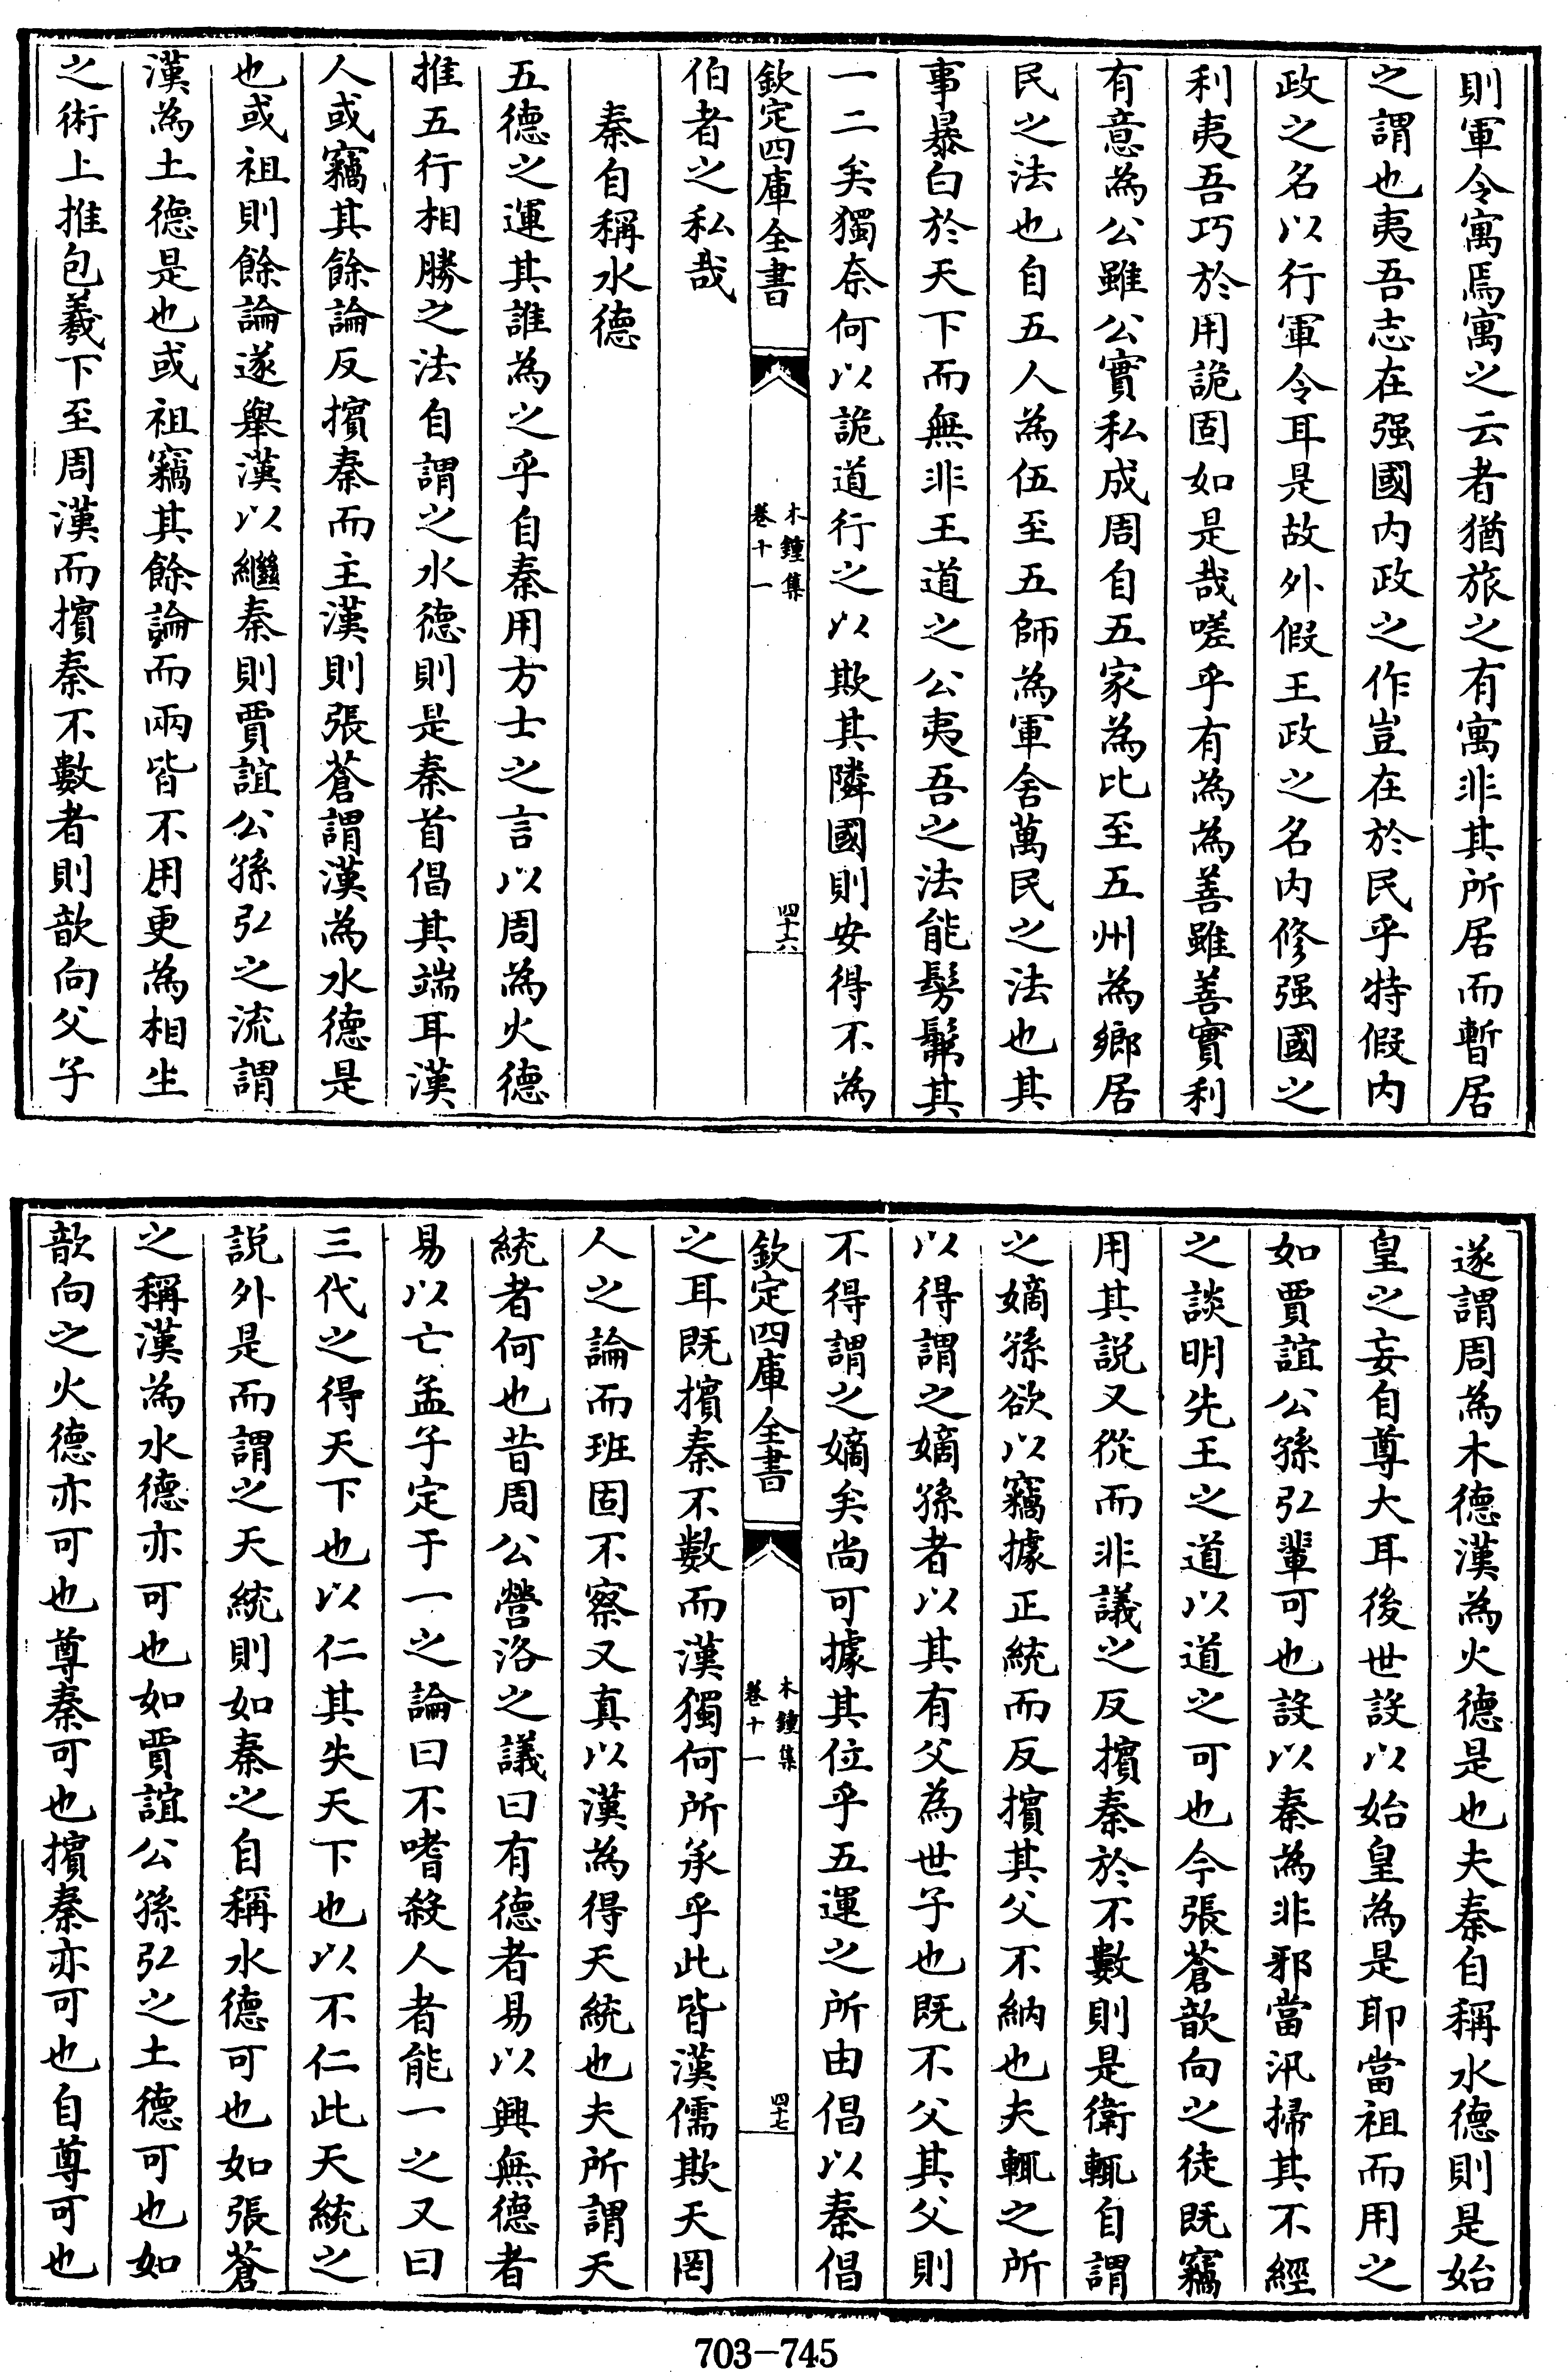 則軍令寓焉寓之云者猶旅之有寓非其所居而暫居
之謂也夷吾志在强國内政之作豈在於民乎特假内
政之名以行軍令耳是故外假王政之名内修强國之
利夷吾巧於用詭固如是哉嗟乎有為為善雖善實利
有意為公雖公實私成周自五家為比至五州為鄉居
民之法也自五人為伍至五師為軍舍萬民之法也其
事暴白於天下而無非王道之公夷吾之法能髣髴其
一二矣獨奈何以詭道行之以欺其隣國則安得不為
欽定四庫全書
木鐘集
卷十一
四十六
伯者之私哉
秦自稱水德
五德之運其誰為之乎自秦用方士之言以周為火德
推五行相勝之法自謂之水德則是秦首倡其端耳漢
人或竊其餘論反擯秦而主漢則張蒼謂漢為水德是
也或祖則餘論遂舉漢以繼秦則賈誼公孫弘之流謂
漢為土德是也或祖竊其餘論而兩皆不用更為相生
之術上推包羲下至周漢而擯秦不數者則歆向父子
遂謂周為木德漢為火德是也夫秦自稱水德則是始
皇之妄自尊大耳後世設以始皇為是耶當祖而用之
如賈誼公孫弘輩可也設以秦為非邪當汛掃其不經
之談明先王之道以道之可也今張蒼歆向之徒既竊
用其説又從而非議之反擯秦於不數則是衛輒自謂
之嫡孫欲以竊據正統而反擯其父不納也夫輒之所
以得謂之嫡孫者以其有父為世子也既不父其父則
不得謂之嫡矣尚可據其位乎五運之所由倡以秦倡
欽定四庫全書
木鐘集
卷十一
四十七
之耳既擯秦不數而漢獨何所承乎此皆漢儒欺天罔
人之論而班固不察又真以漢為得天統也夫所謂天
統者何也昔周公營洛之議曰有德者易以興無德者
易以亡孟子定于一之論曰不嗜殺人者能一之又曰
三代之得天下也以仁其失天下也以不仁此天統之
説外是而謂之天統則如秦之自稱水德可也如張蒼
之稱漢為水德亦可也如賈誼公孫弘之土德可也如
歆向之火德亦可也尊秦可也擯秦亦可也自尊可也
703-745